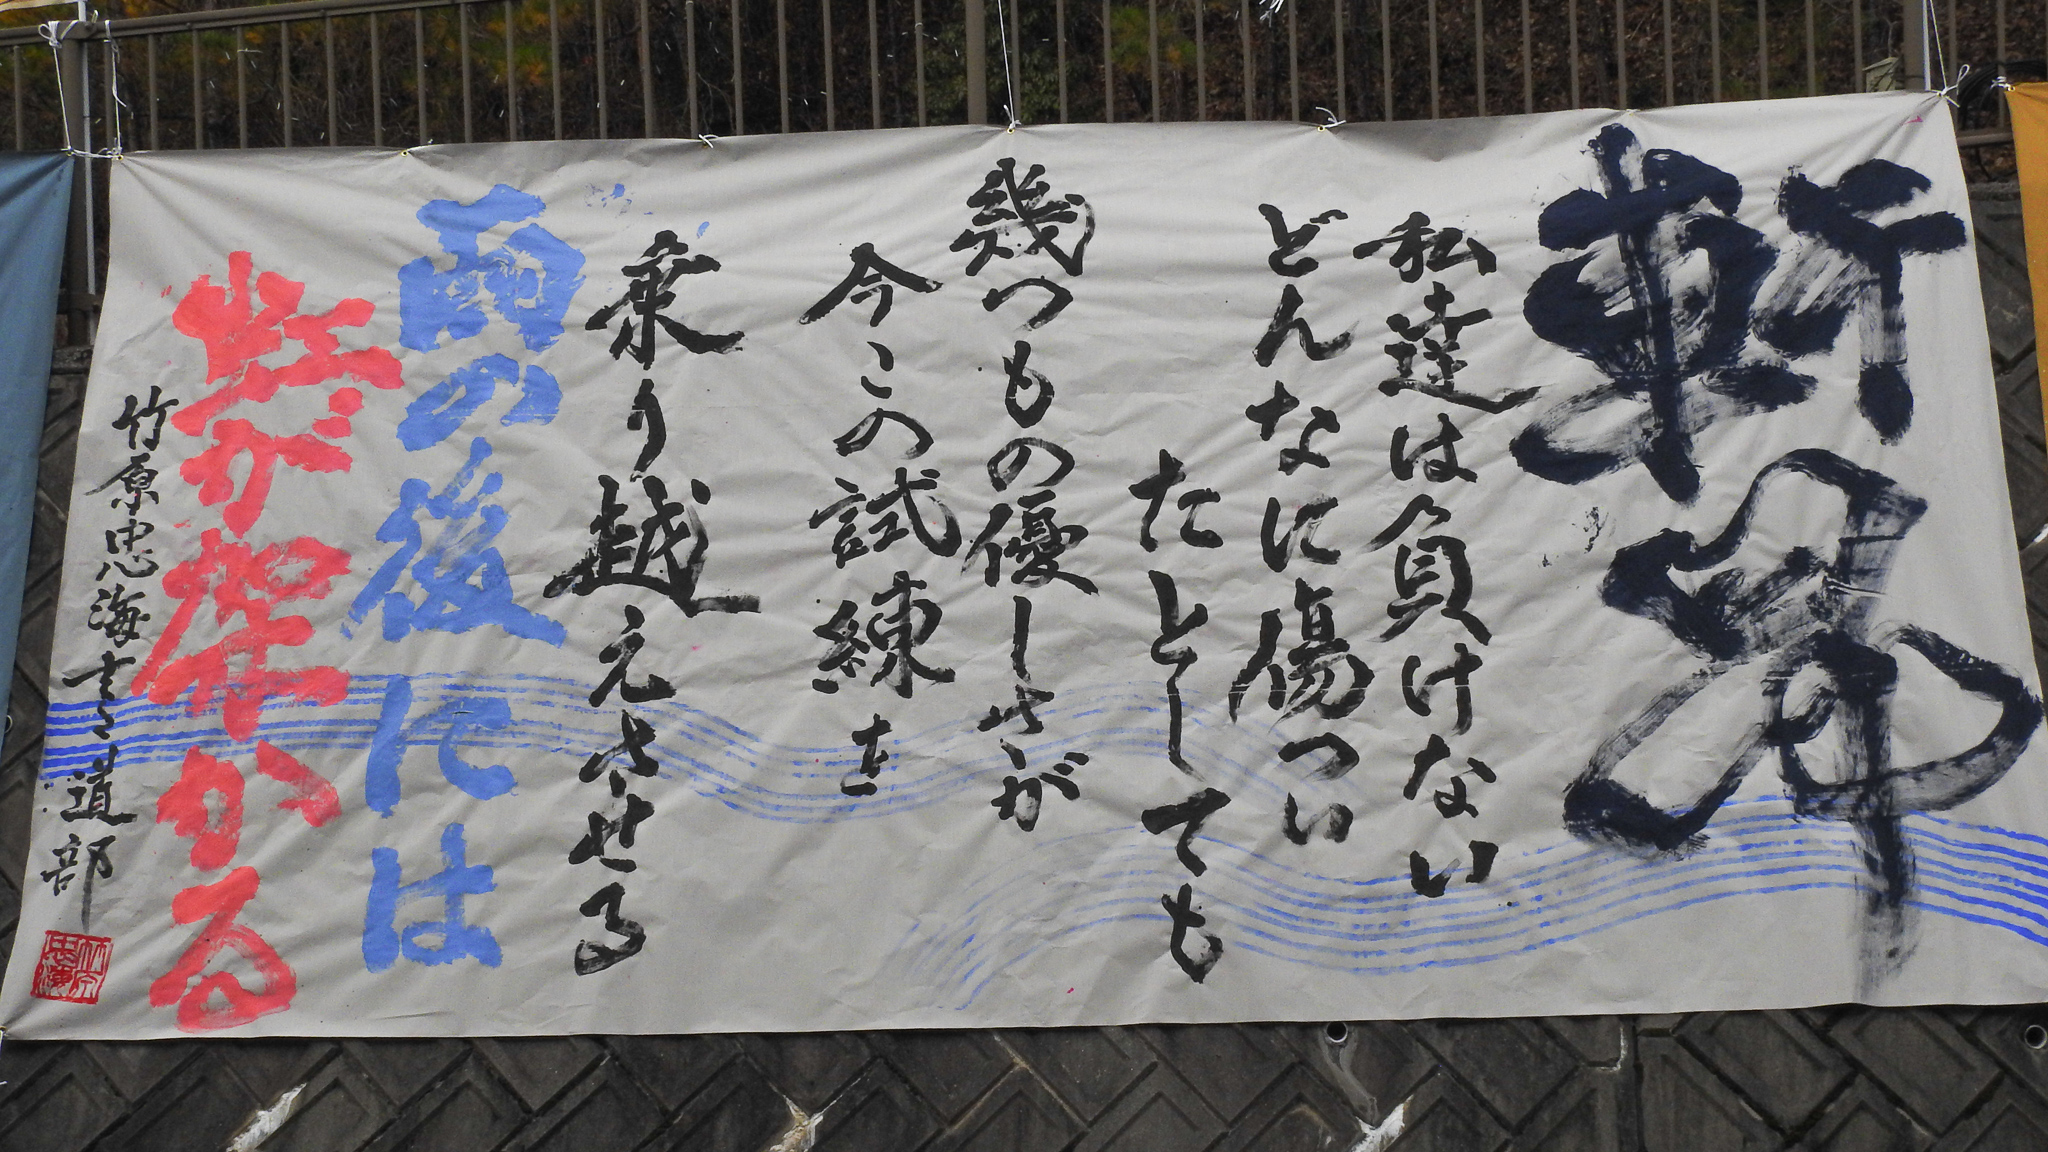 軒昂
私達は負けない
どんなに傷つい
たとしても
幾つもの優しさが
今この試練を
乗り越えさせる
雨の後には
虹が架かる
竹原忠海書道部
竹原忠海